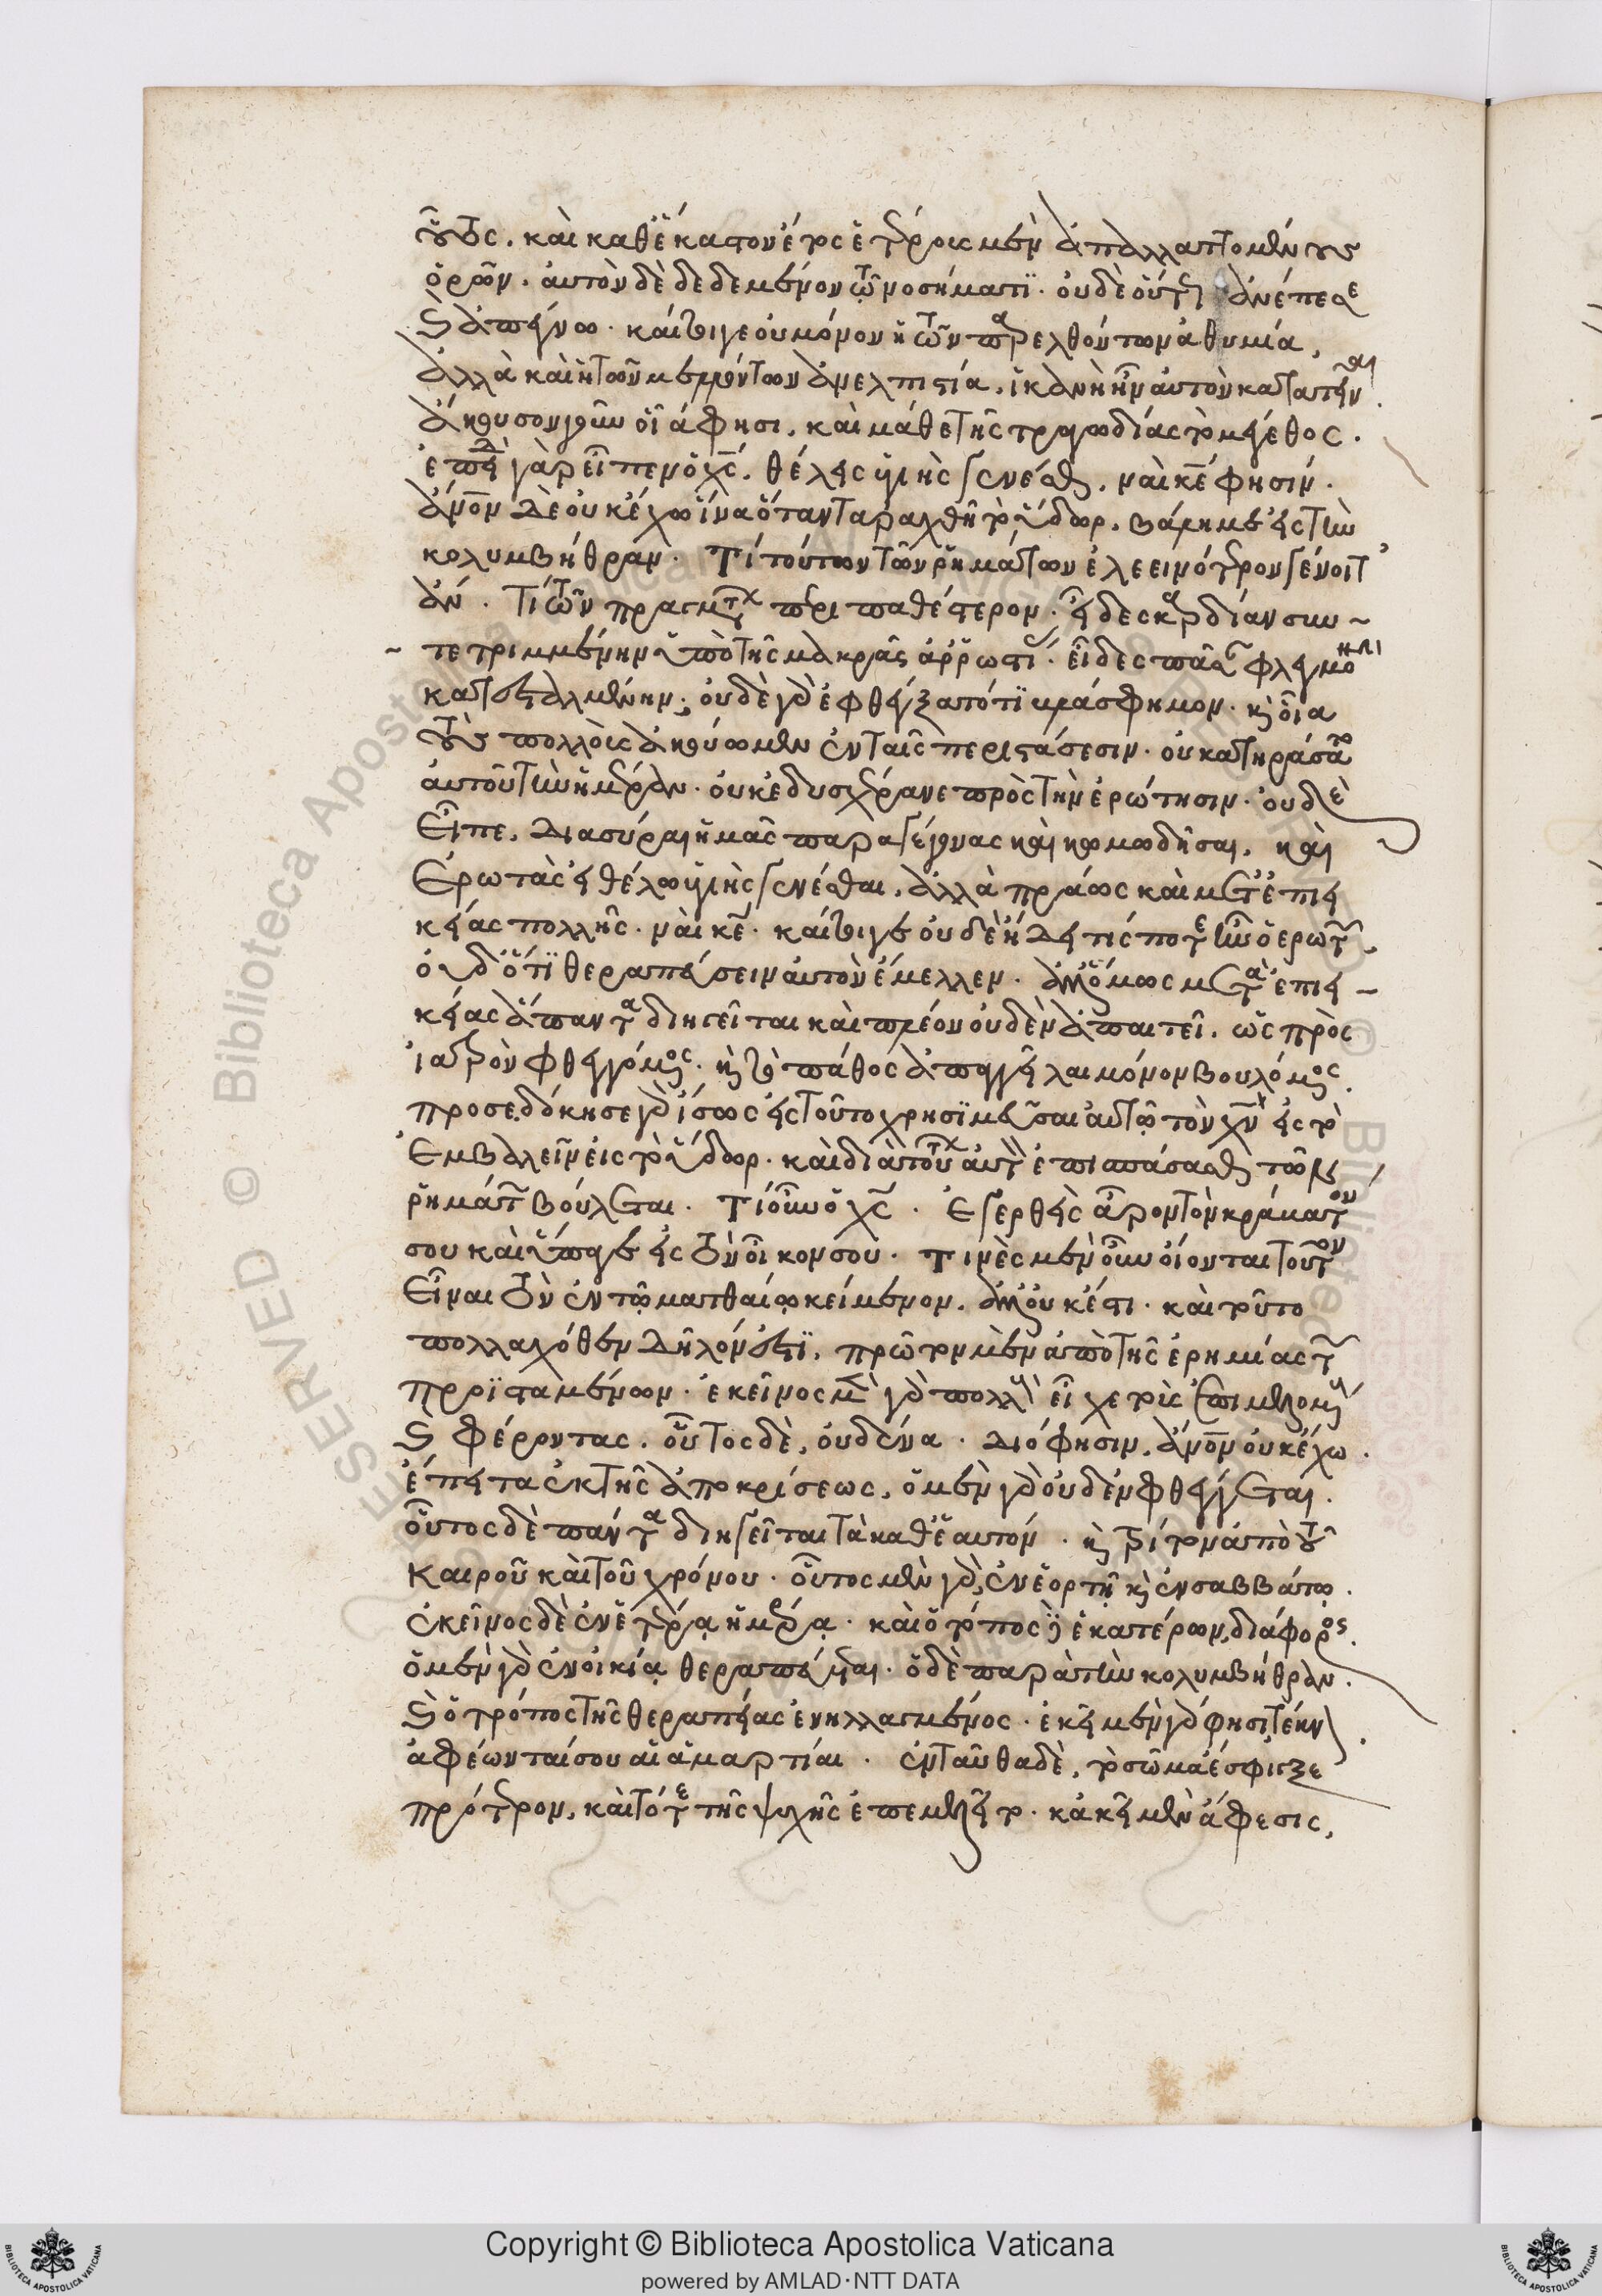 τοῦτος. καὶ καθ' ἕκαστον ἔτος ἑτέρους μὲν ἀπαλλαττομένους
ὁρῶν. αὐτὸν δὲ δεδεμένον τῷ νοσήματι. οὐδὲ οὕτως ἀνέπεσε
καὶ ἀπείπω. καίτοιγε οὐ μόνον ἡ τῶν παρελθόντων ἀθυμία,
ἀλλὰ καὶ ἡ τῶν μελλόντων ἀνελπιστία, ἱκανὴ ἦν αὐτὸν κατατεῖναι.
ἄκουσον γοῦν οἷά φησι, καὶ μάθε τῆς τραγωδίας τὸ μέγεθος.
ἐπειδὴ γὰρ εἶπεν ὁ χς. θέλεις ὑγιὴς γενέσθαι, ναὶ κε φησίν.
ἄνον δὲ οὐκ ἔχω ἵνα ὅταν ταραχθῆ τὸ ὕδωρ, βάλη με εἰς τὴν
κολυμβήθραν. Τί τούτων τῶν ῥημάτων ἐλεεινότερον γένοιτ'
ἄν. Τί τῶν πραγμάτων περιπαθέστερον. εἶδες καρδίαν συν
τετριμμένην ὑπὸ τῆς μακρᾶς ἀρρωστίας. εἶδες πᾶσαν φλεγμονὴν
κατεσταλμένην. οὐδὲ γὰρ ἐφθέγξατό τι βλάσφημον. καὶ οἷα
τοὺς πολλοὺς ἀκούομεν ἐν ταῖς περιστάσεσιν. οὐ κατηράσατο
αὐτοῦ τὴν ἡμέραν. οὐκ ἐδυσχέρανε πρὸς τὴν ἐρώτησιν. οὐδὲ
εἶπε, διασύραι ἡμᾶς παραγέγονας καὶ κωμωδῆσαι, καὶ
ἐρωτᾶς εἰ θέλω ὑγιὴς γενέσθαι, ἀλλὰ πράως καὶ μετ' ἐπιει
κείας πολλῆς. ναὶ κε. καίτοιγε οὐδὲ ἤδει τίς ποτε ἦν ὁ ἐρωτῶν.
οὐδ' ὅτι θεραπεύσειν αὐτὸν ἔμελλεν. ἀλλ' ὅμως μετὰ ἐπιει
κείας ἅπαντα διηγεῖται καὶ πλέον οὐδὲν ἀπαιτεῖ. ὡς πρὸς
ἰατρὸν φθεγγόμενος. καὶ τὸ πάθος ἀπαγγεῖλαι μόνον βουλόμενος.
προσεδόκησε γὰρ ἴσως εἰς τοῦτο χρησιμεῦσαι αὐτῷ τὸν χν εἰς τὸ
ἐμβαλεῖν εἰς τὸ ὕδωρ. καὶ διὰ τούτων αὐτὸν ἐπισπάσασθαι τῶν
ῥημάτων βούλεται. Τί οὖν ὁ χς. Ἐγερθεὶς ἆρον τὸν κράβατόν
σου καὶ ὕπαγε εἰς τὸν οἶκον σου. Τινὲς μὲν οὖν οἴονται τοῦτον
εἶναι τὸν ἐν τῷ ματθαίῳ κείμενον. ἀλλ' οὐκ ἔστι. καὶ τοῦτο
πολλαχόθεν δῆλόν ἐστι, πρῶτον μὲν ἀπὸ τῆς ἐρημίας τῶν
προϊσταμένων. ἐκεῖνος μὲν γὰρ πολλοὺς εἶχε τοὺς ἐπιμελουμένους
καὶ φέροντας. οὗτος δὲ, οὐδένα. Διό φησιν, ἄνον οὐκ ἔχω.
ἔπειτα ἐκ τῆς ἀποκρίσεως, ὁ μὲν γὰρ οὐδὲν φθέγγεται.
οὗτος δὲ πάντα διηγεῖται τὰ καθ' ἑαυτόν. καὶ τρίτον ἀπὸ τοῦ
καιροῦ καὶ τοῦ χρόνου. οὗτος μὲν γὰρ, ἐν ἑορτῇ καὶ ἐν σαββάτῳ.
ἐκεῖνος δὲ ἐν ἑτέρᾳ ἡμέρᾳ. καὶ ὁ τόπος δὲ ἑκατέρων, διάφορος.
ὁ μὲν γὰρ ἐν οἰκίᾳ θεραπεύεται. ὁ δὲ παρὰ τὴν κολυμβήθραν.
καὶ ὁ τρόπος τῆς θεραπείας ἐνηλλαγμένος. ἐκεῖ μὲν γὰρ φησι, τέκνον
ἀφέωνταί σου αἱ ἁμαρτίαι. ἐνταῦθα δὲ, τὸ σῶμα ἔσφιγξε
πρότερον, καὶ τότε τῆς ψυχῆς ἐπεμελεῖτο. κἀκεῖ μὲν ἄφεσις,
Copyright © Biblioteca Apostolica Vaticana
powered by AMLAD·NTT DATA